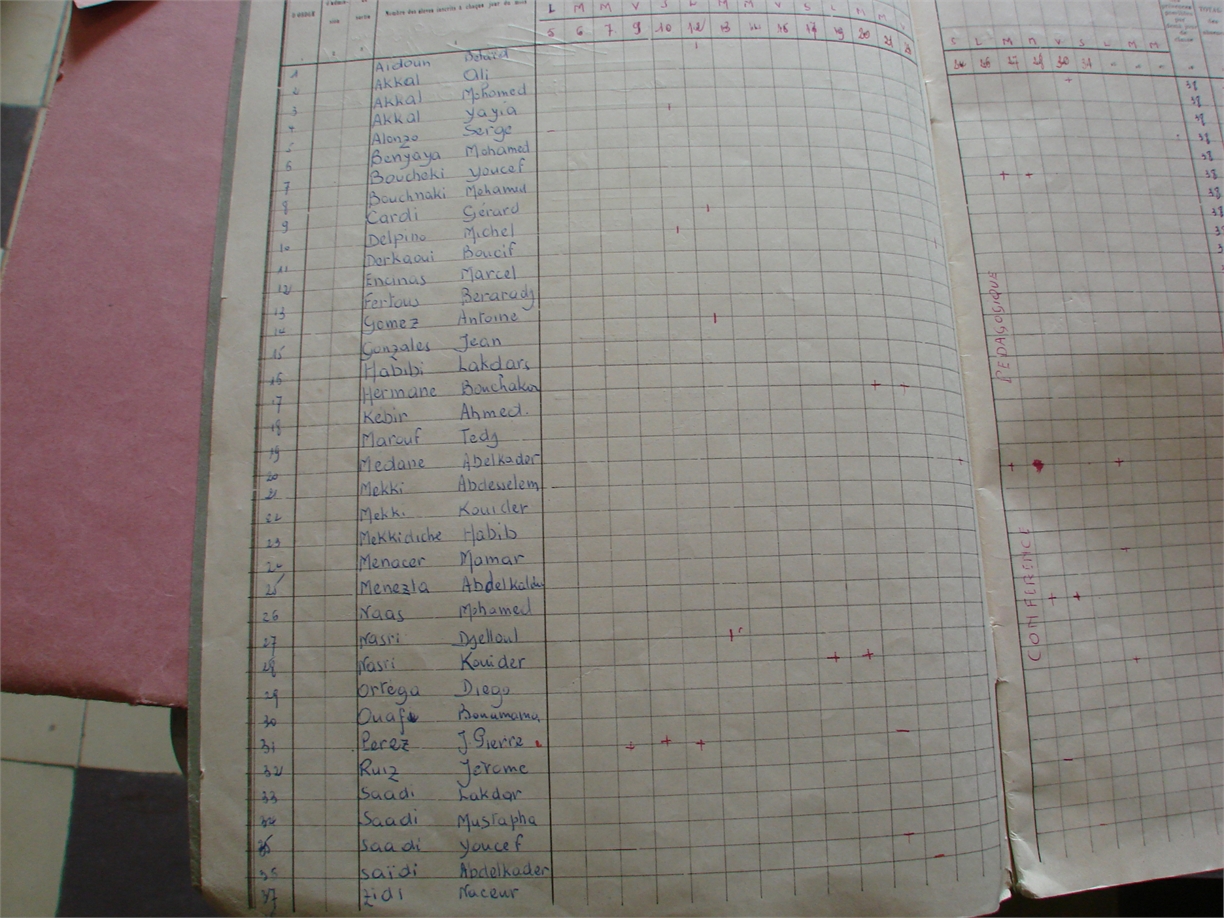 Nombre des élèves inscrits à chaque jour du mois
L M M V S L M M V S L M M
5 6 7 9 10 12 13 14 16 17 19 20 21
L M M V S L M M
26 27 28 30 31
TOTAL
Aidoun
1 Akkal Ali
2 Akkal Mohamed
3 Akkal Yayia
4 Alonzo Serge
5 Benyaya Mohamed
6 Boucheki Youcef
7 Bouchnaki Mohamed
8 Cardi Gérard
9 Delpino Michel
10 Derkaoui Boucif
11 Encinas Marcel
12 Fertous
13 Gomez Antoine
14 Gonzales Jean
15 Habibi Lakdars
16 Hermane
17 Kebir Ahmed.
18 Marouf Tedj
19 Medane Abelkader
20 Mekki Abdesselem
21 Mekki Kouider
22 Mekkidiche Habib
23 Menacer Mamar
24 Menezla
25 Naas Mohamed
26 Nasri Djelloul
27 Nasri Kouider
28 Ortega Diego
29
30 Perez J.Pierre
31 Ruiz Jérome
32 Saadi Lakdar
33 Saadi Mustapha
34 Saadi Youcef
35 Saïdi Abdelkader
36 Zidi Naceur
37
38
38
38
38
38
38
38
CONFERENCE PEDAGOGIQUE